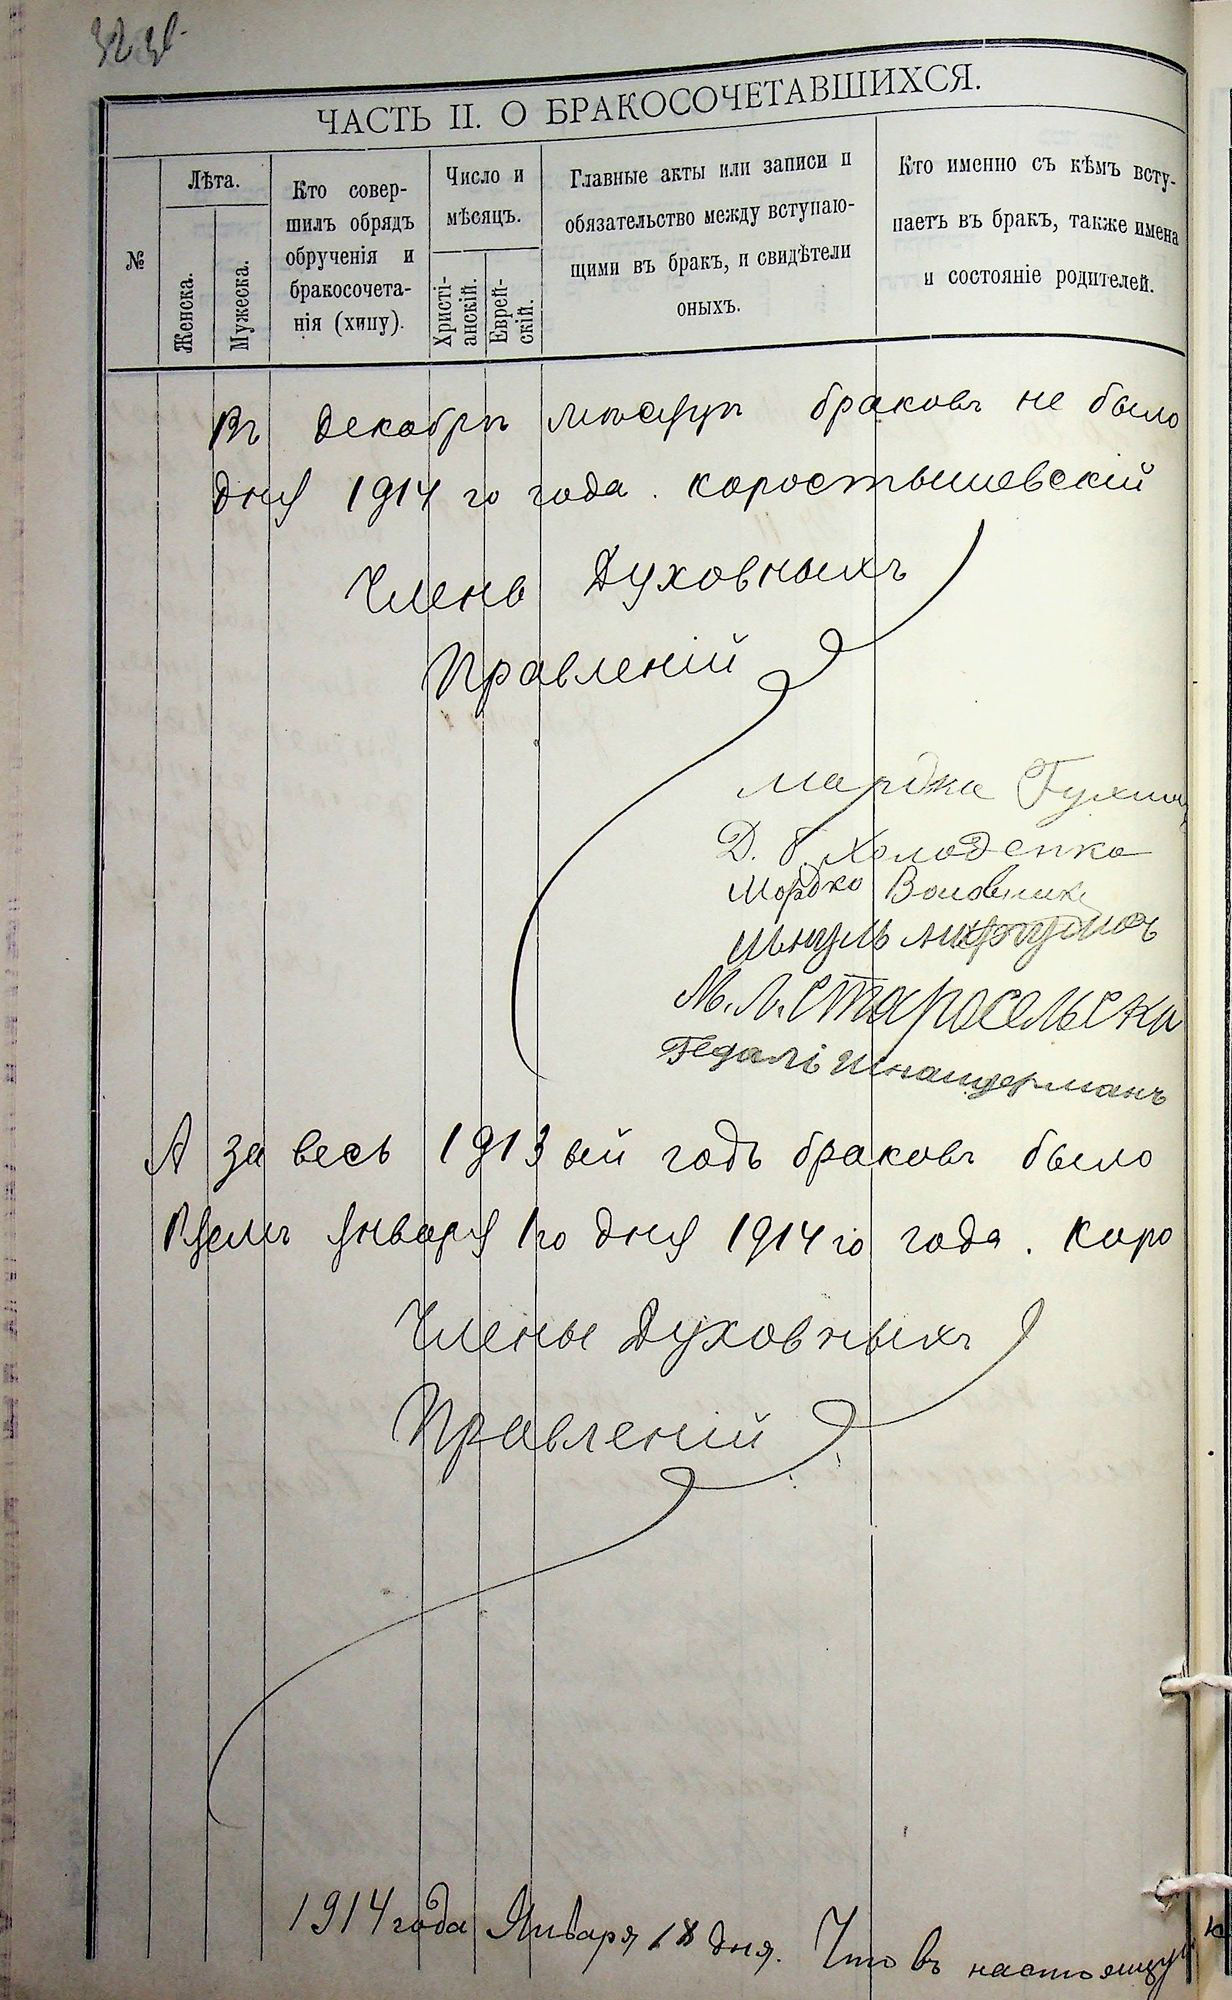 ЧАСТЬ II. О БРАКОСОЧЕТАВШИХСЯ.
№
Лѣта.
Женска.
Мужеска.
Кто совер-
шилъ обрядъ
обрученія и
бракосочета-
нія (хипу).
Число и
мѣсяцъ.
Христі-
анскій.
Еврей-
скій.
Главные акты или записи и
обязательство между вступаю-
щими въ бракъ, и свидѣтели
оныхъ.
Кто именно съ кѣмъ всту-
паетъ въ бракъ, также имена
и состояніе родителей.
Въ декабрѣ мѣсяцѣ браковъ не было
дня 1914 го года. Коростышевскій
Члены Духовныхъ
Правленій
Д. Холоденко
Мордко Воловник
М. Л. Старосельски
Гедалі Шнайдерманъ
А за весь 1913 ый годъ браковъ было
января 1го дня 1914 го года. Коро
Члены Духовныхъ
Правленій
1914 года Января 18 дня. Что въ настоящу